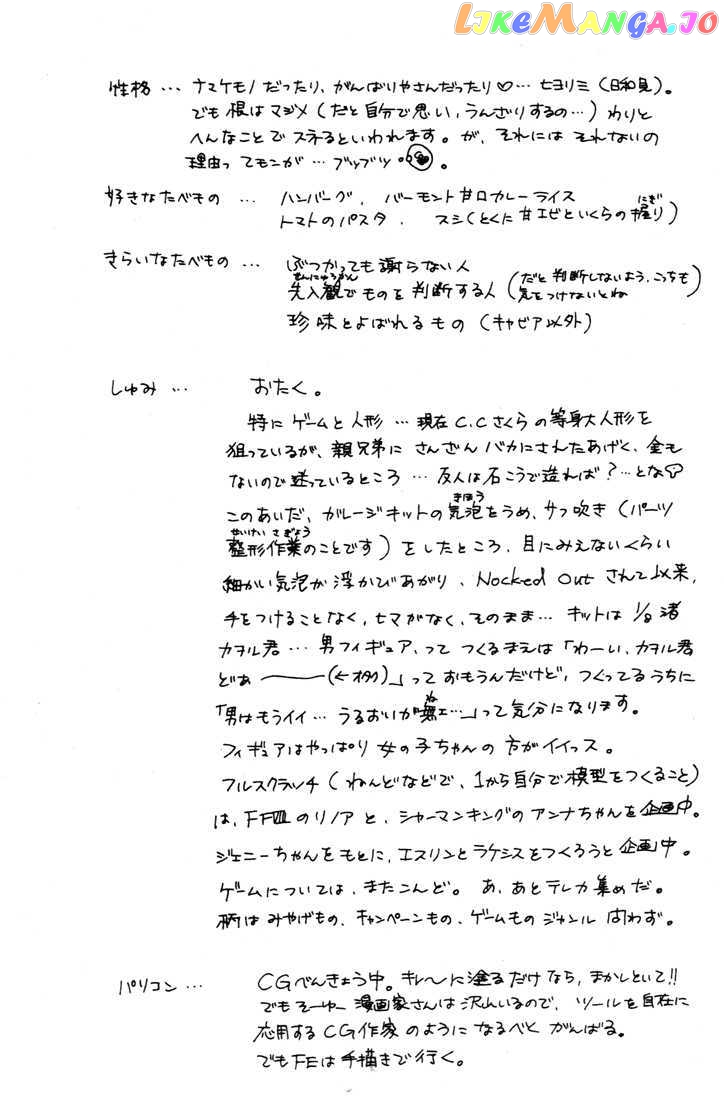 LIKEMANGA.IO
性格 … ナマケモノだったり、がんばりやさんだったり♡… 七ヨリミ(日和見)。
でも根はマジメ(だと自分で思い、うんざりするの…)わりと
へんなことでスネるといわれます。が、それにはそれないの
理由ってモンが … ブツブツ 。
好きなたべもの … ハンバーグ、バーモント甘口カレーライス
トマトのパスタ、スシ(とくに甘エビといくらの握り)
にぎ
きらいなたべもの … ぶつかっても謝らない人
せんにゅうかん
先入観でものを判断する人(だと判断しないよう、こっちも
気をつけないとね)
珍味とよばれるもの(キャビア以外)
しゅみ … おたく。
特にゲームと人形 … 現在C.Cさくらの等身大人形を
狙っているが、親兄弟にさんざんバカにされたあげく、金も
ないので迷っているところ … 友人は石こうで造れば?…とな
きほう
このあいだ、ガレージキットの気泡をうめ、サフ吹き(パーツ
せいけい さぎょう
整形作業のことです)をしたところ、目にみえないくらい
細かい気泡が浮かびあがり、Nocked Outされて以来、
手をつけることなく、ヒマがなく、そのまま… キットは1/8渚
カヲル君 … 男フィギュア、ってつくるまえは「わーい、カヲル君
どぁ――(←オタク)」っておもうんだけど、つくってるうちに
ね
「男はもうイイ… うるおいが無ェ…」って気分になります。
フィギュアはやっぱり女の子ちゃんの方がイイっス。
フルスクラッチ(ねんどなどで、1から自分で模型をつくること)
は、FFⅧのリノアと、シャーマンキングのアンナちゃんを企画中。
ジェニーちゃんをもとに、エスリンとラケシスをつくろうと企画中。
ゲームについては、またこんど。あ、あとテレカ集めだ。
柄はみやげもの、キャンペーンもの、ゲームものジャンル問わず。
パソコン … CGべんきょう中。キレ〜に塗るだけなら、まかしといて!!
でもそーゆー漫画家さんは沢山いるので、ツールを自在に
応用するCG作家のようになるべくがんばる。
でもFEは手描きで行く。